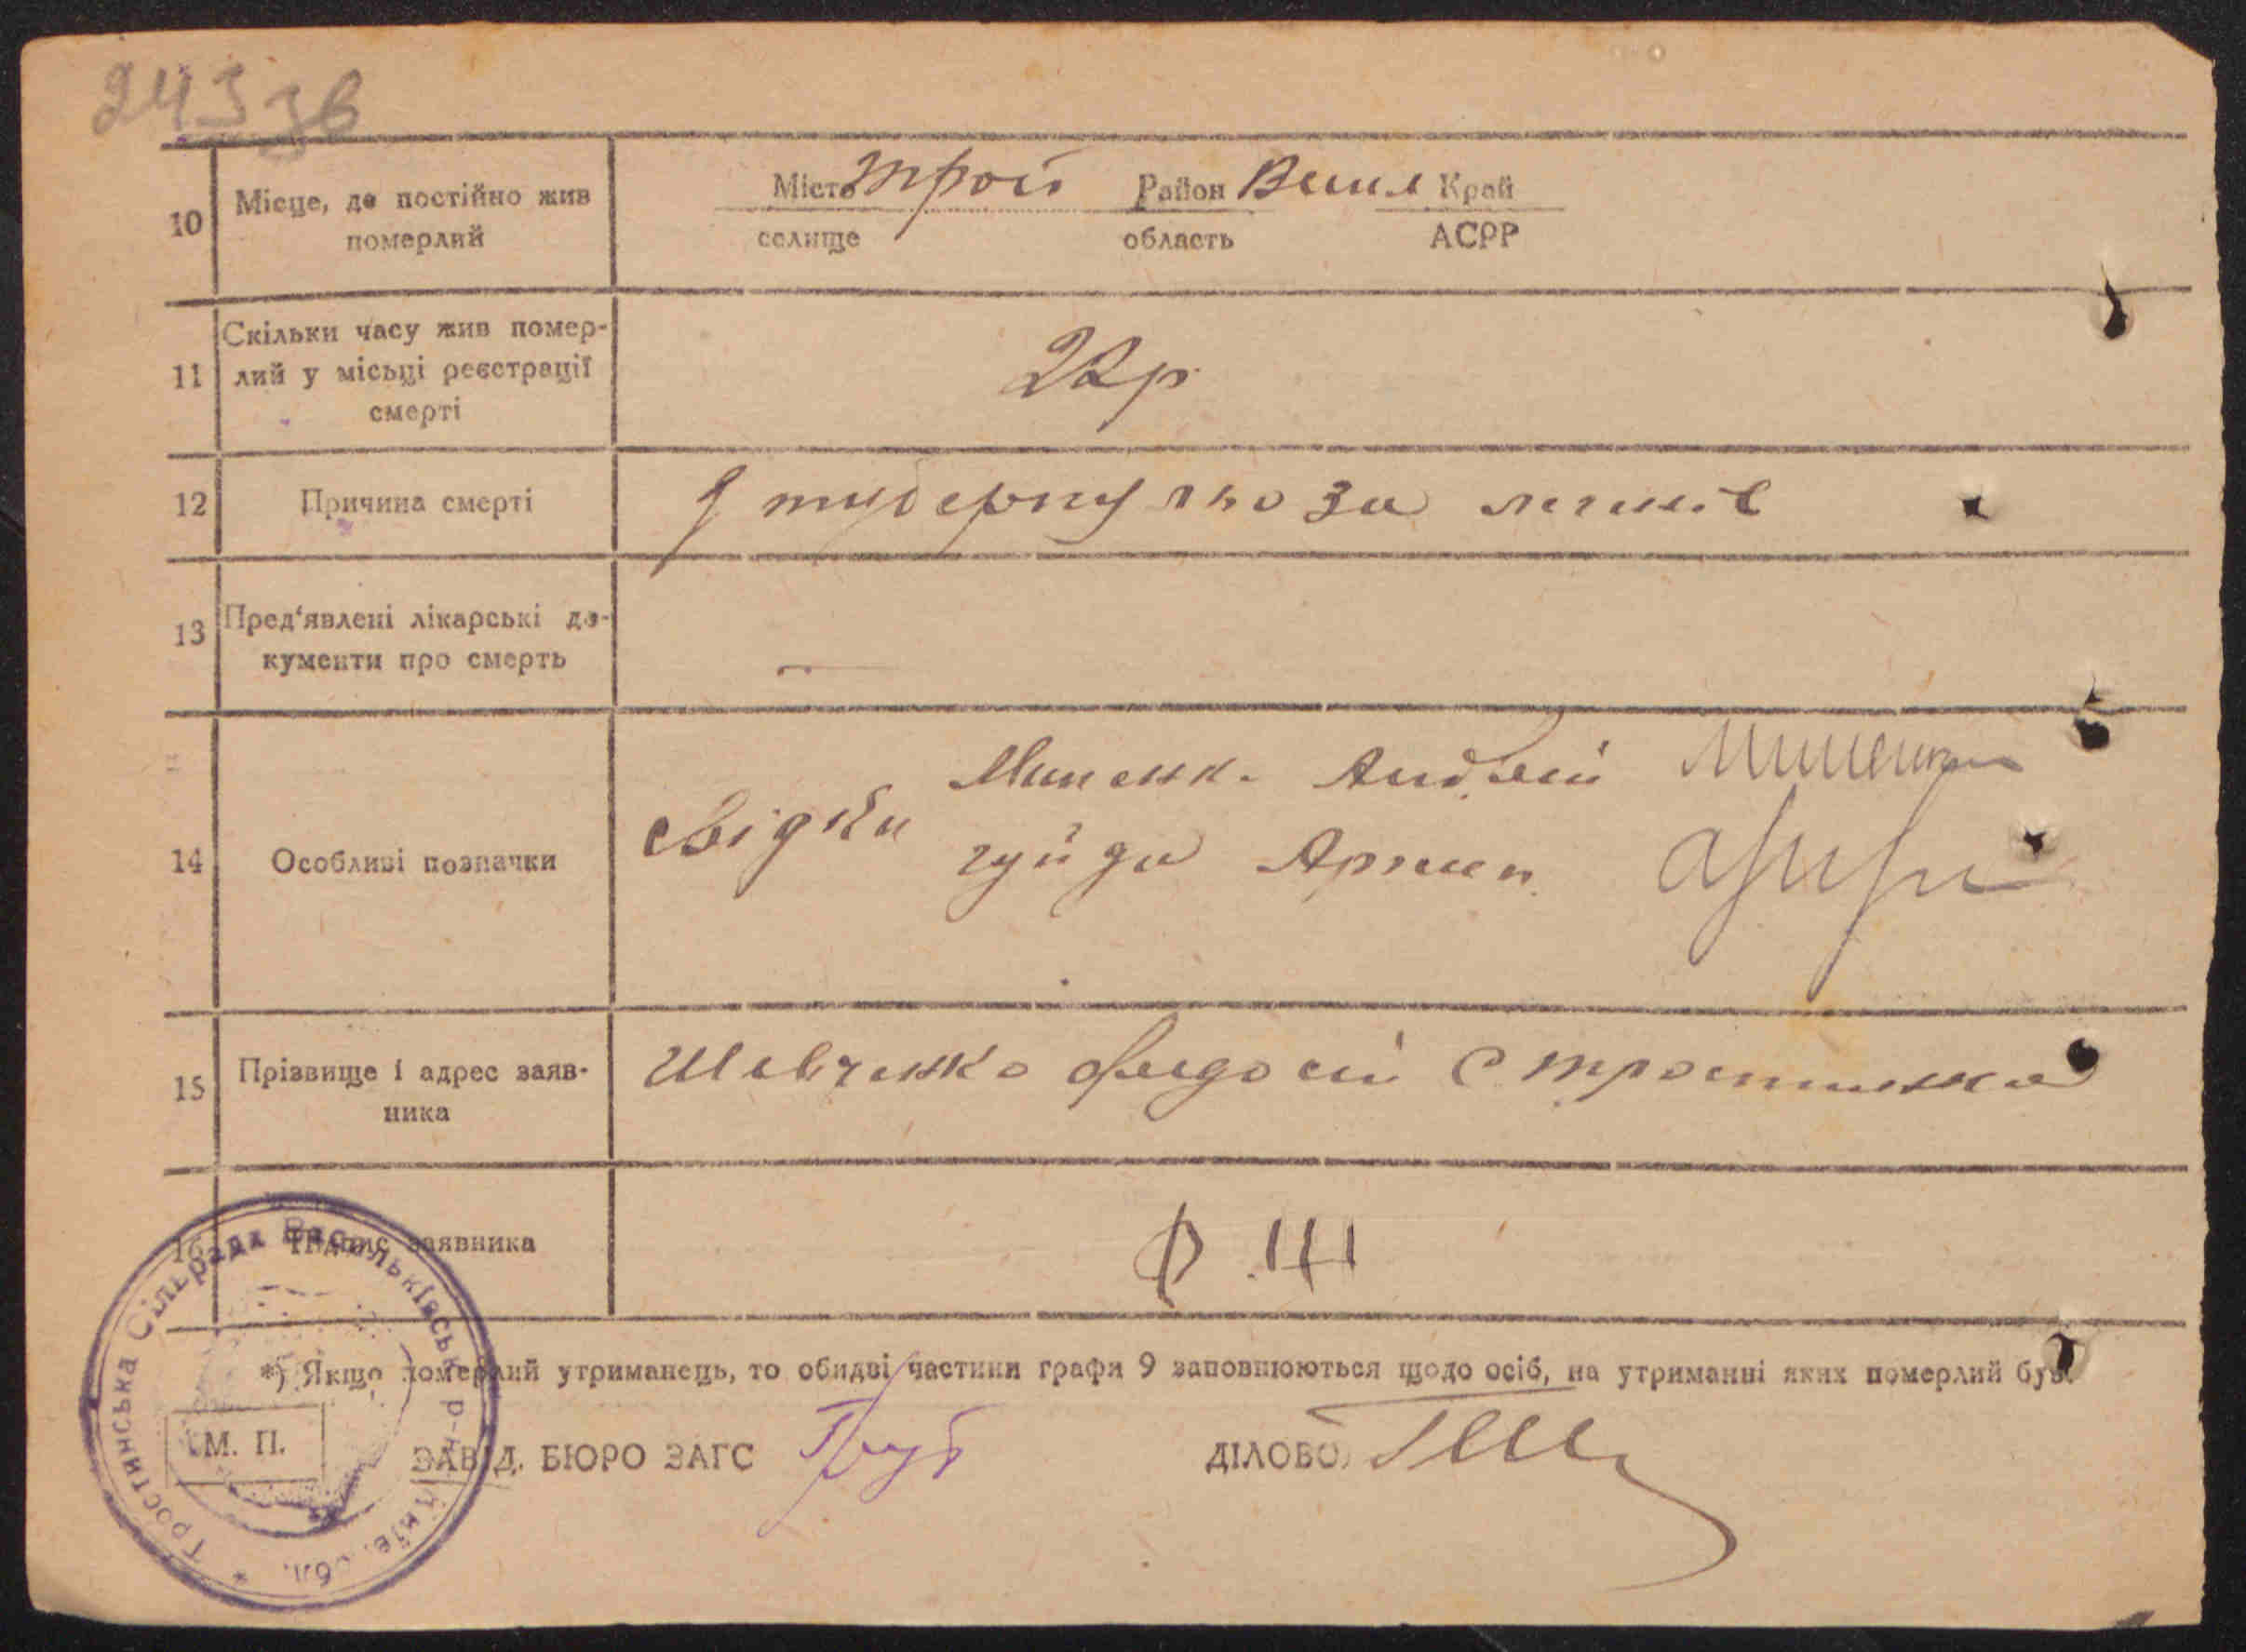 243 зв
10 Місце, де постійно жив померлий
Місто Трост Район Васил Край
селище область АСРР
11 Скільки часу жив помер-
лий у місьці реєстрації
смерті
22р
12 Причина смерті
туберкульоза легенів
13 Пред'явлені лікарські до-
кументи про смерть
—
14 Особливі позначки
свідки
Андрей
гуйда
15 Прізвище і адрес заяв-
ника
Шевченко Федосій С тростинка
16 Підпис заявника
Ф. Ш
*) Якщо померлий утриманець, то обидві частини графи 9 заповнюються щодо осіб, на утриманні яких померлий був.
М. П.
ЗАВІД. БЮРО ЗАГС
ДІЛОВОД
* Тростинська Сільрада Васильківськ. р-н Київ. обл.